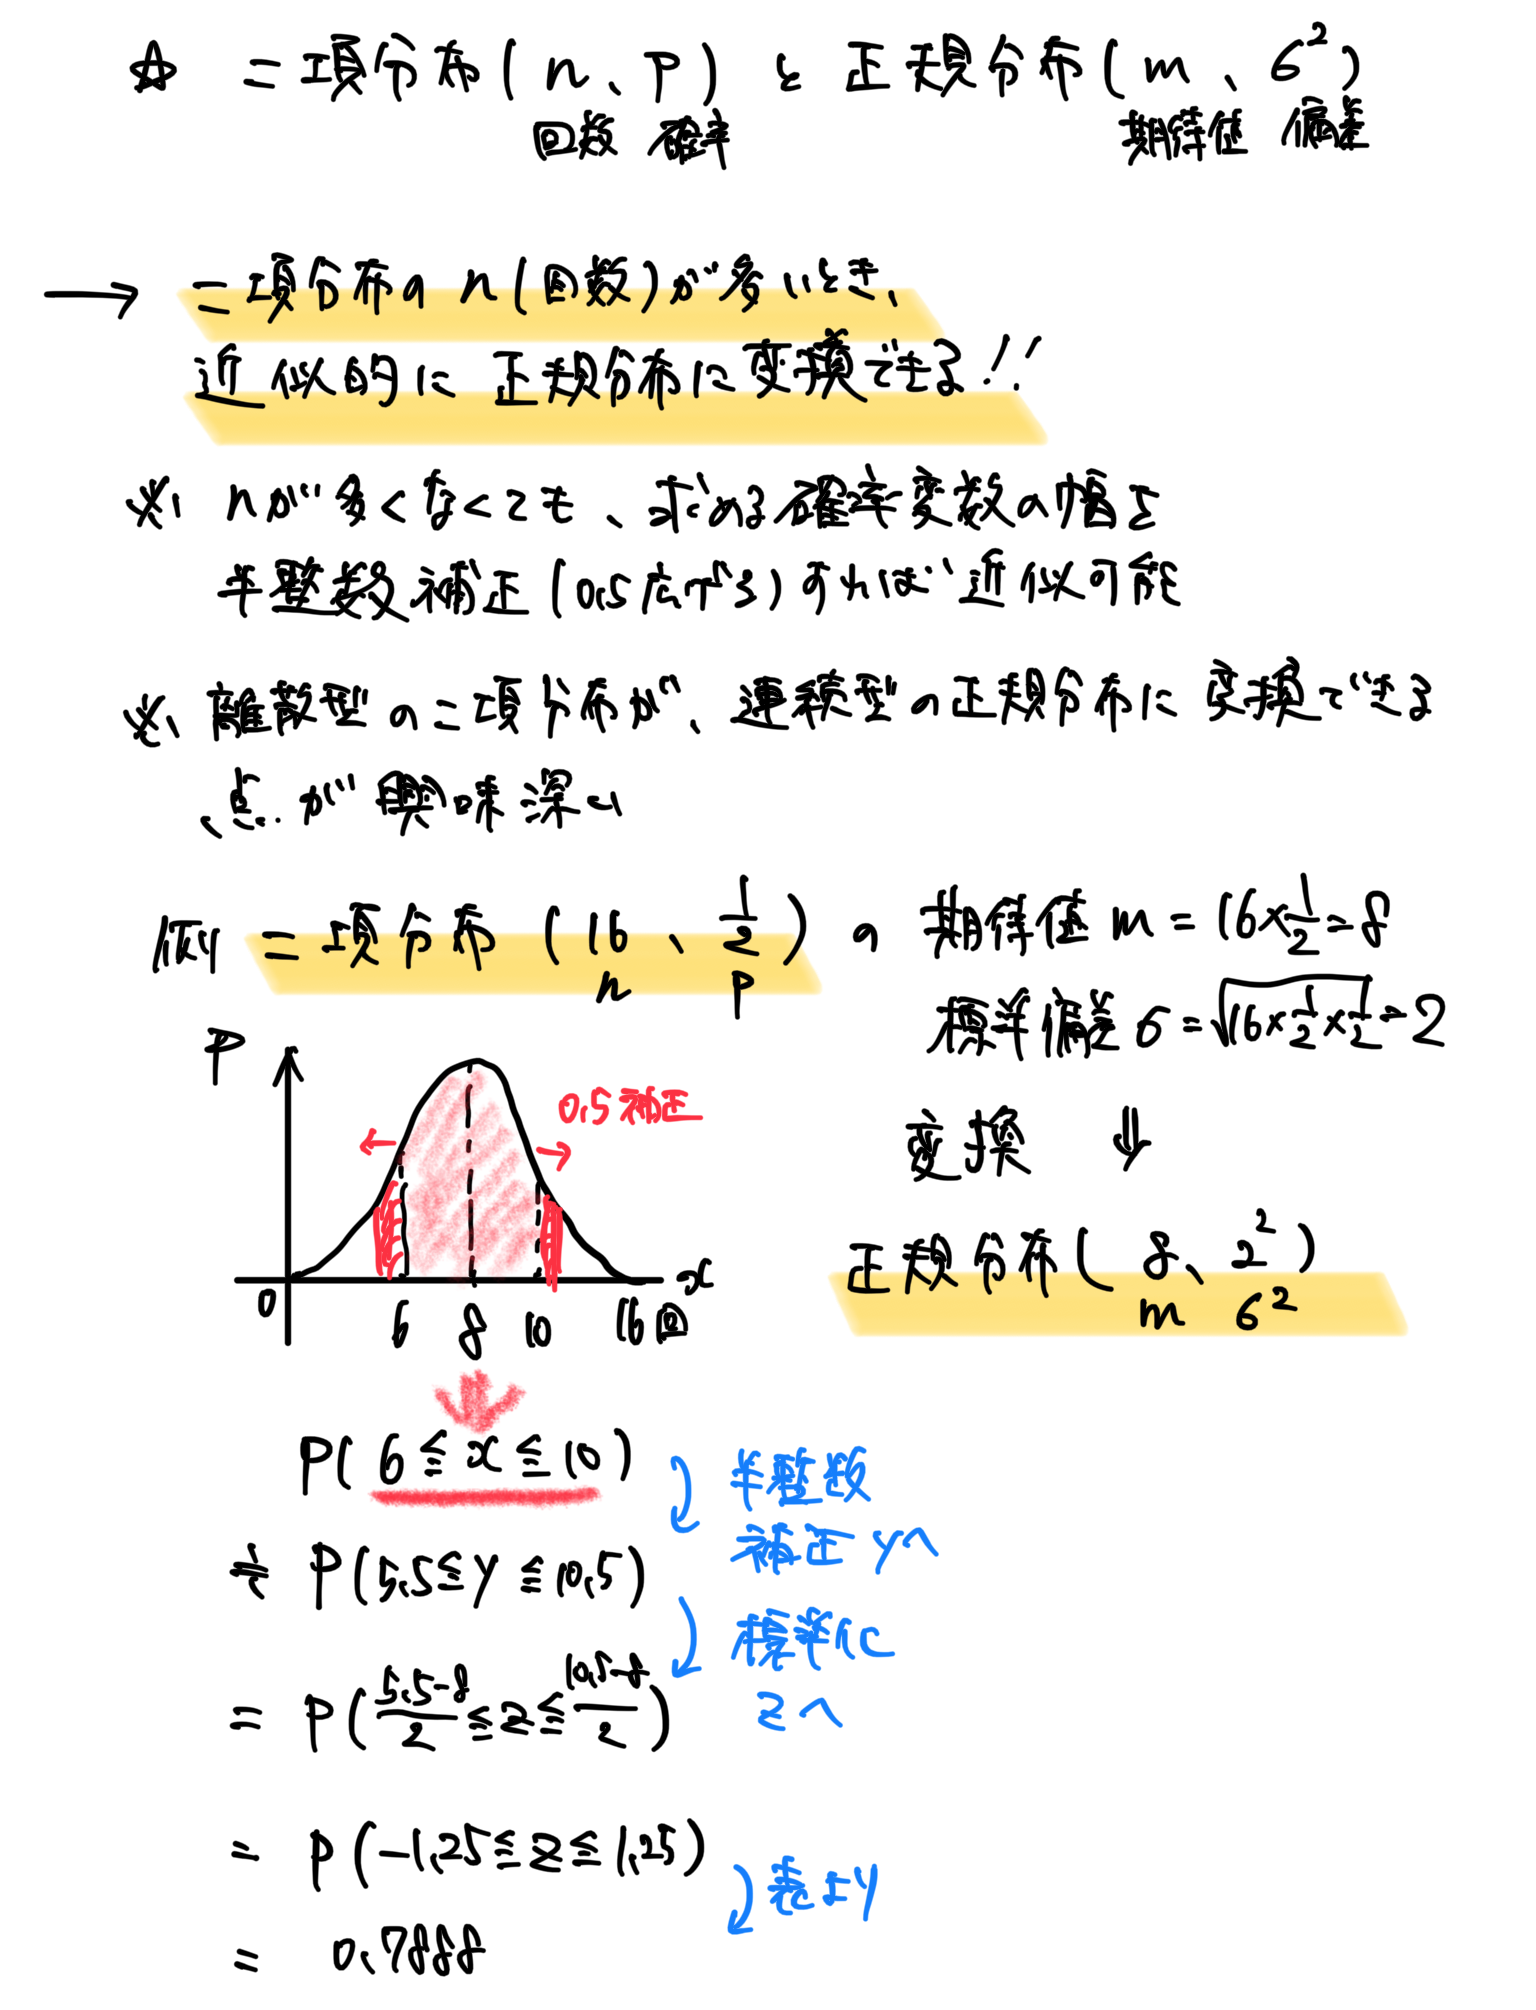 ☆ 二項分布(n、P)と正規分布(m、σ²)
回数 確率 期待値 偏差
→ 二項分布のn(回数)が多いとき、
近似的に正規分布に変換できる!!
※ nが多くなくても、求める確率変数の幅を
半整数補正(0.5広げる)すれば近似可能
※ 離散型の二項分布が、連続型の正規分布に変換できる
点が興味深い
例 二項分布(16、1/2)の 期待値 m=16×1/2=8
n P
標準偏差 σ=√16×1/2×1/2=2
P
0.5補正
変換 ⇓
正規分布(8、2²)
m σ²
x
0 6 8 10 16回
P(6≦x≦10)
半整数
補正 yへ
≒ P(5.5≦y≦10.5)
標準化
zへ
= P(5.5-8/2≦z≦10.5-8/2)
= P(-1.25≦z≦1.25)
表より
= 0.7888